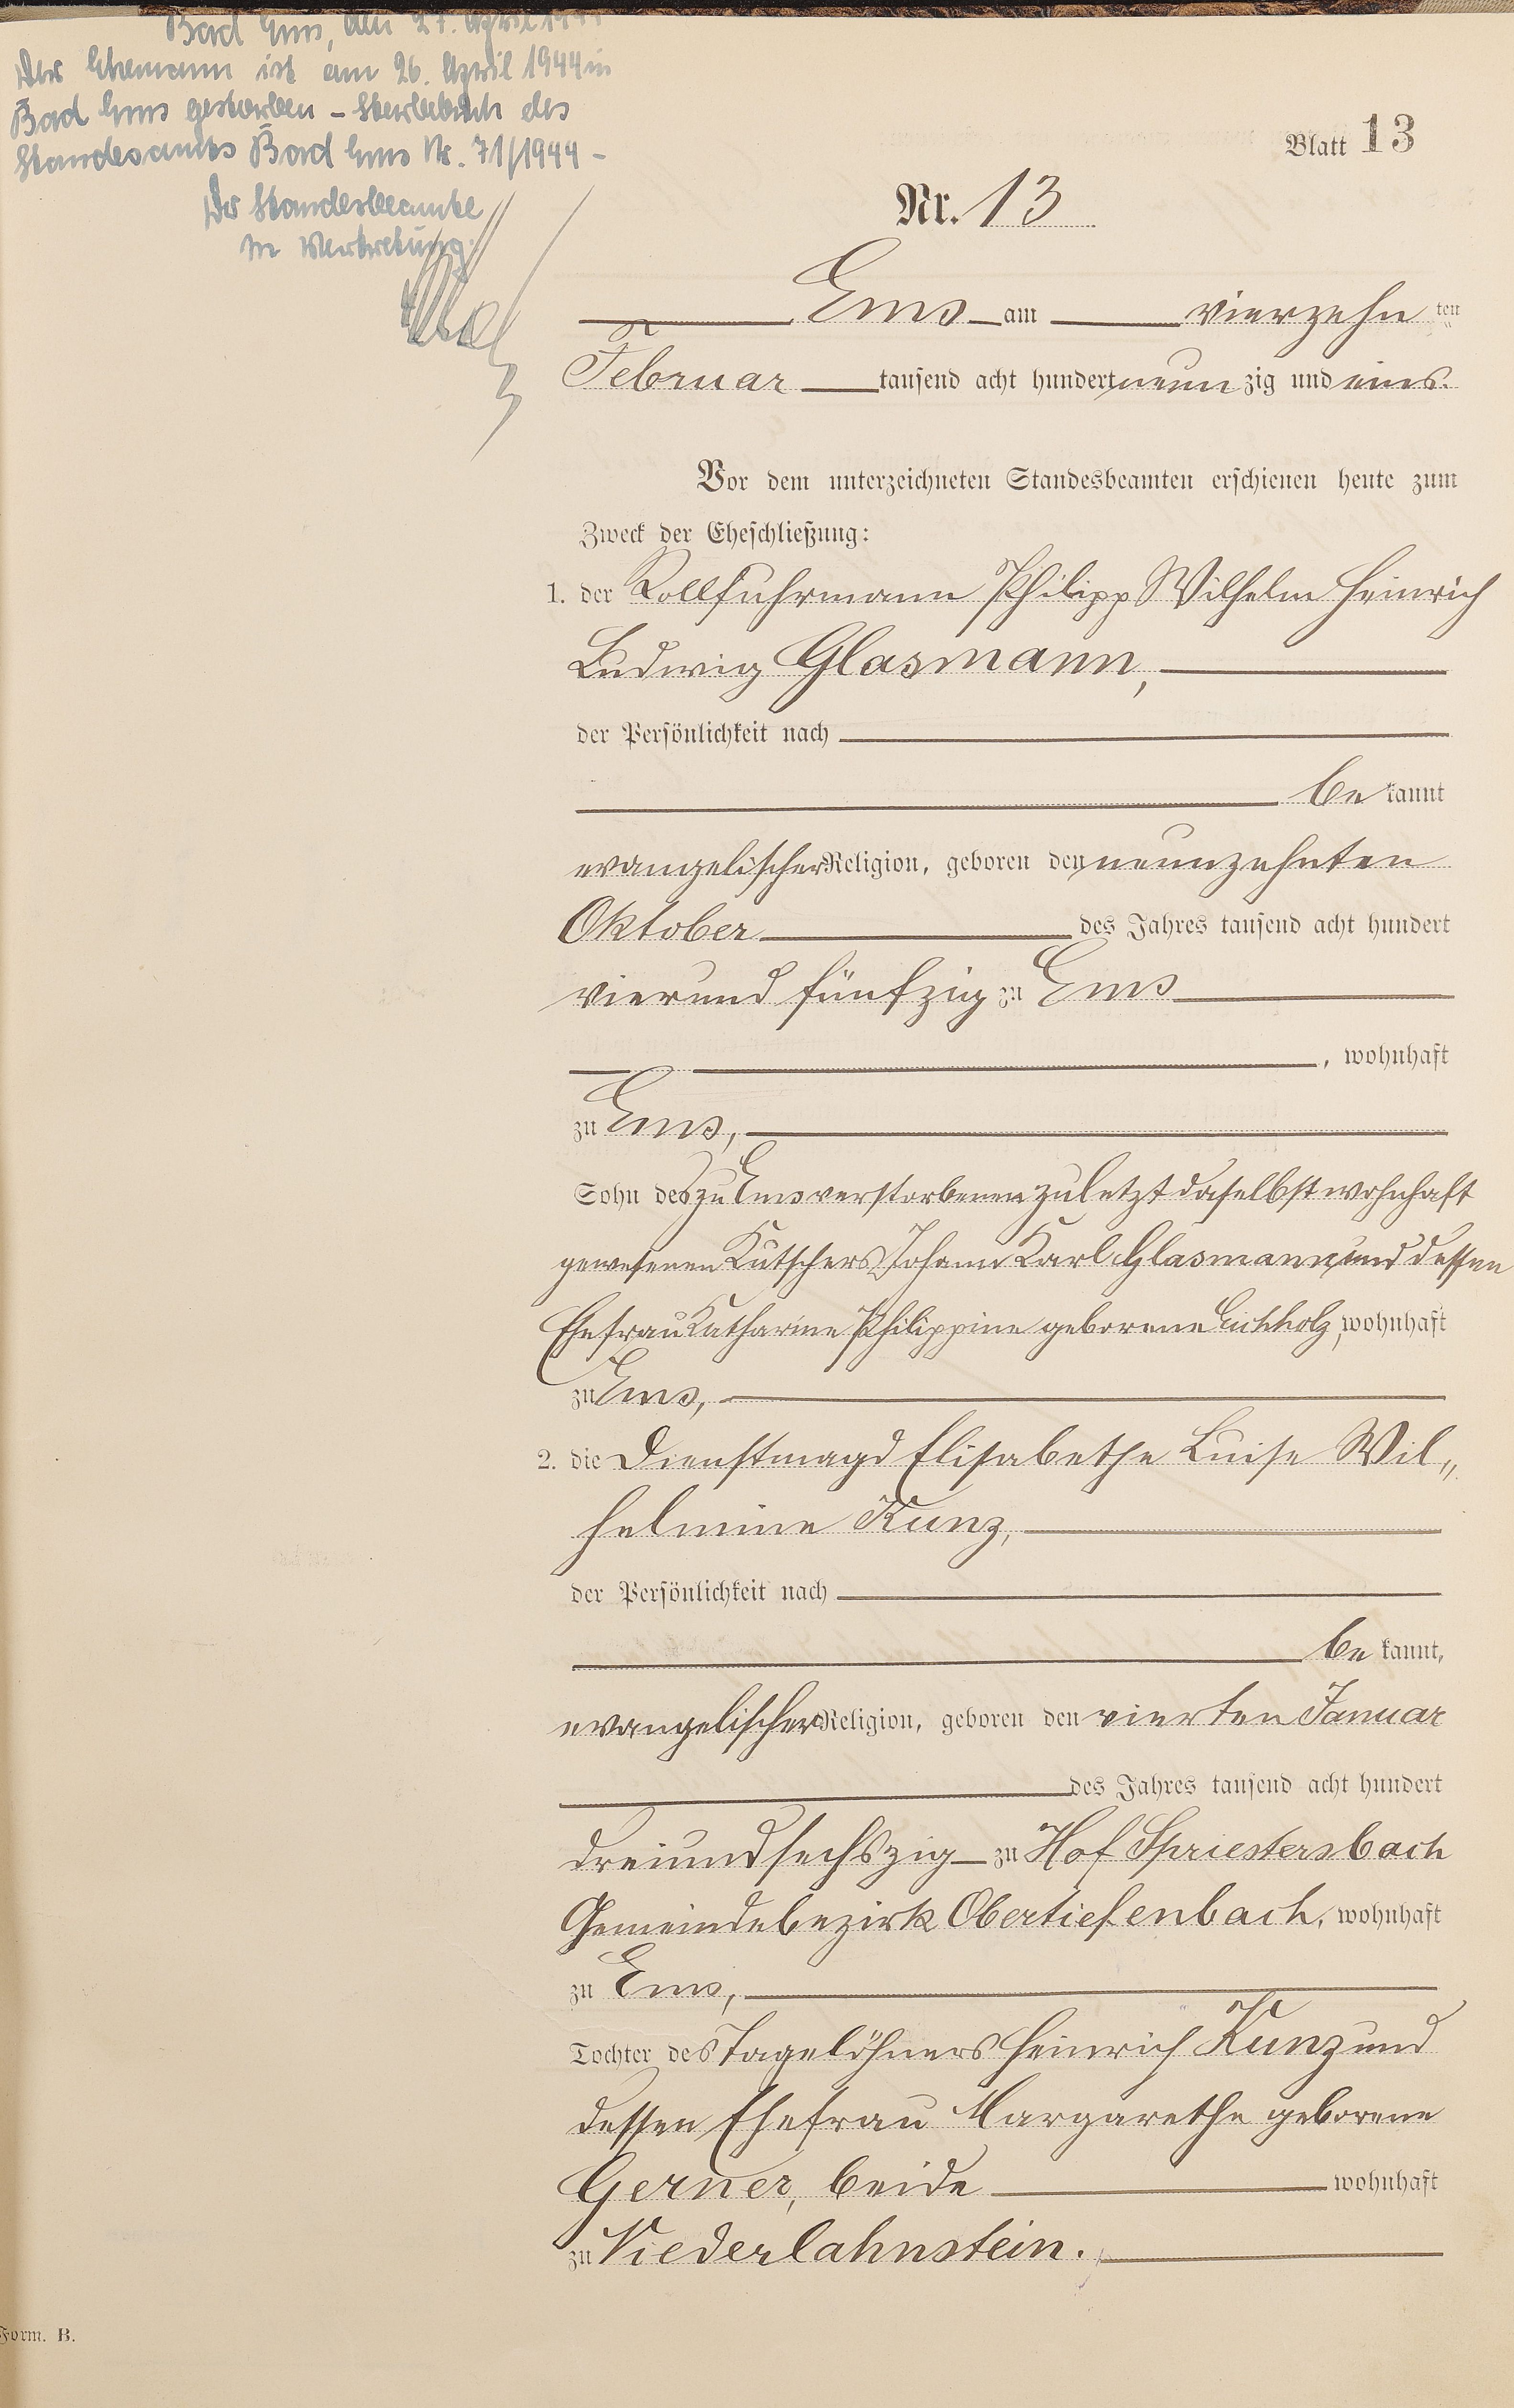 Bad Ems, den 27. April 1944
Der Ehemann ist am 26. April 1944 in
Bad Ems gestorben – Sterbebuch des
Standesamts Bad Ems Nr. 71/1944 –
Der Standesbeamte
In Vertretung:
Blatt 13
Nr. 13
Ems am vierzehn ten
Februar tausend acht hundert neun zig und eins.
Vor dem unterzeichneten Standesbeamten erschienen heute zum
Zweck der Eheschließung:
1. der Rollfuhrmann Philipp Wilhelm Heinrich
Ludwig Glasmann,
der Persönlichkeit nach
be kannt
evangelischer Religion, geboren den neunzehnten
Oktober des Jahres tausend acht hundert
vierund fünfzig zu Ems
, wohnhaft
zu Ems,
Sohn des zu Ems verstorbenen zuletzt daselbst wohnhaft
gewesenen Kutschers Johann Karl Glasmann und dessen
Ehefrau Katharine Philippine geborene Eichholz, wohnhaft
zu Ems,
2. die Dienstmagd Elisabethe Luise Wil„
helmine Kunz,
der Persönlichkeit nach
be kannt,
evangelischer Religion, geboren den vierten Januar
des Jahres tausend acht hundert
dreiundsechszig zu Hof Spriestersbach
Gemeindebezirk Obertiefenbach, wohnhaft
zu Ems,
Tochter des Tagelöhners Heinrich Kunz und
dessen Ehefrau Margarethe geborene
Gerner, beide wohnhaft
zu Niederlahnstein.
Form. B.